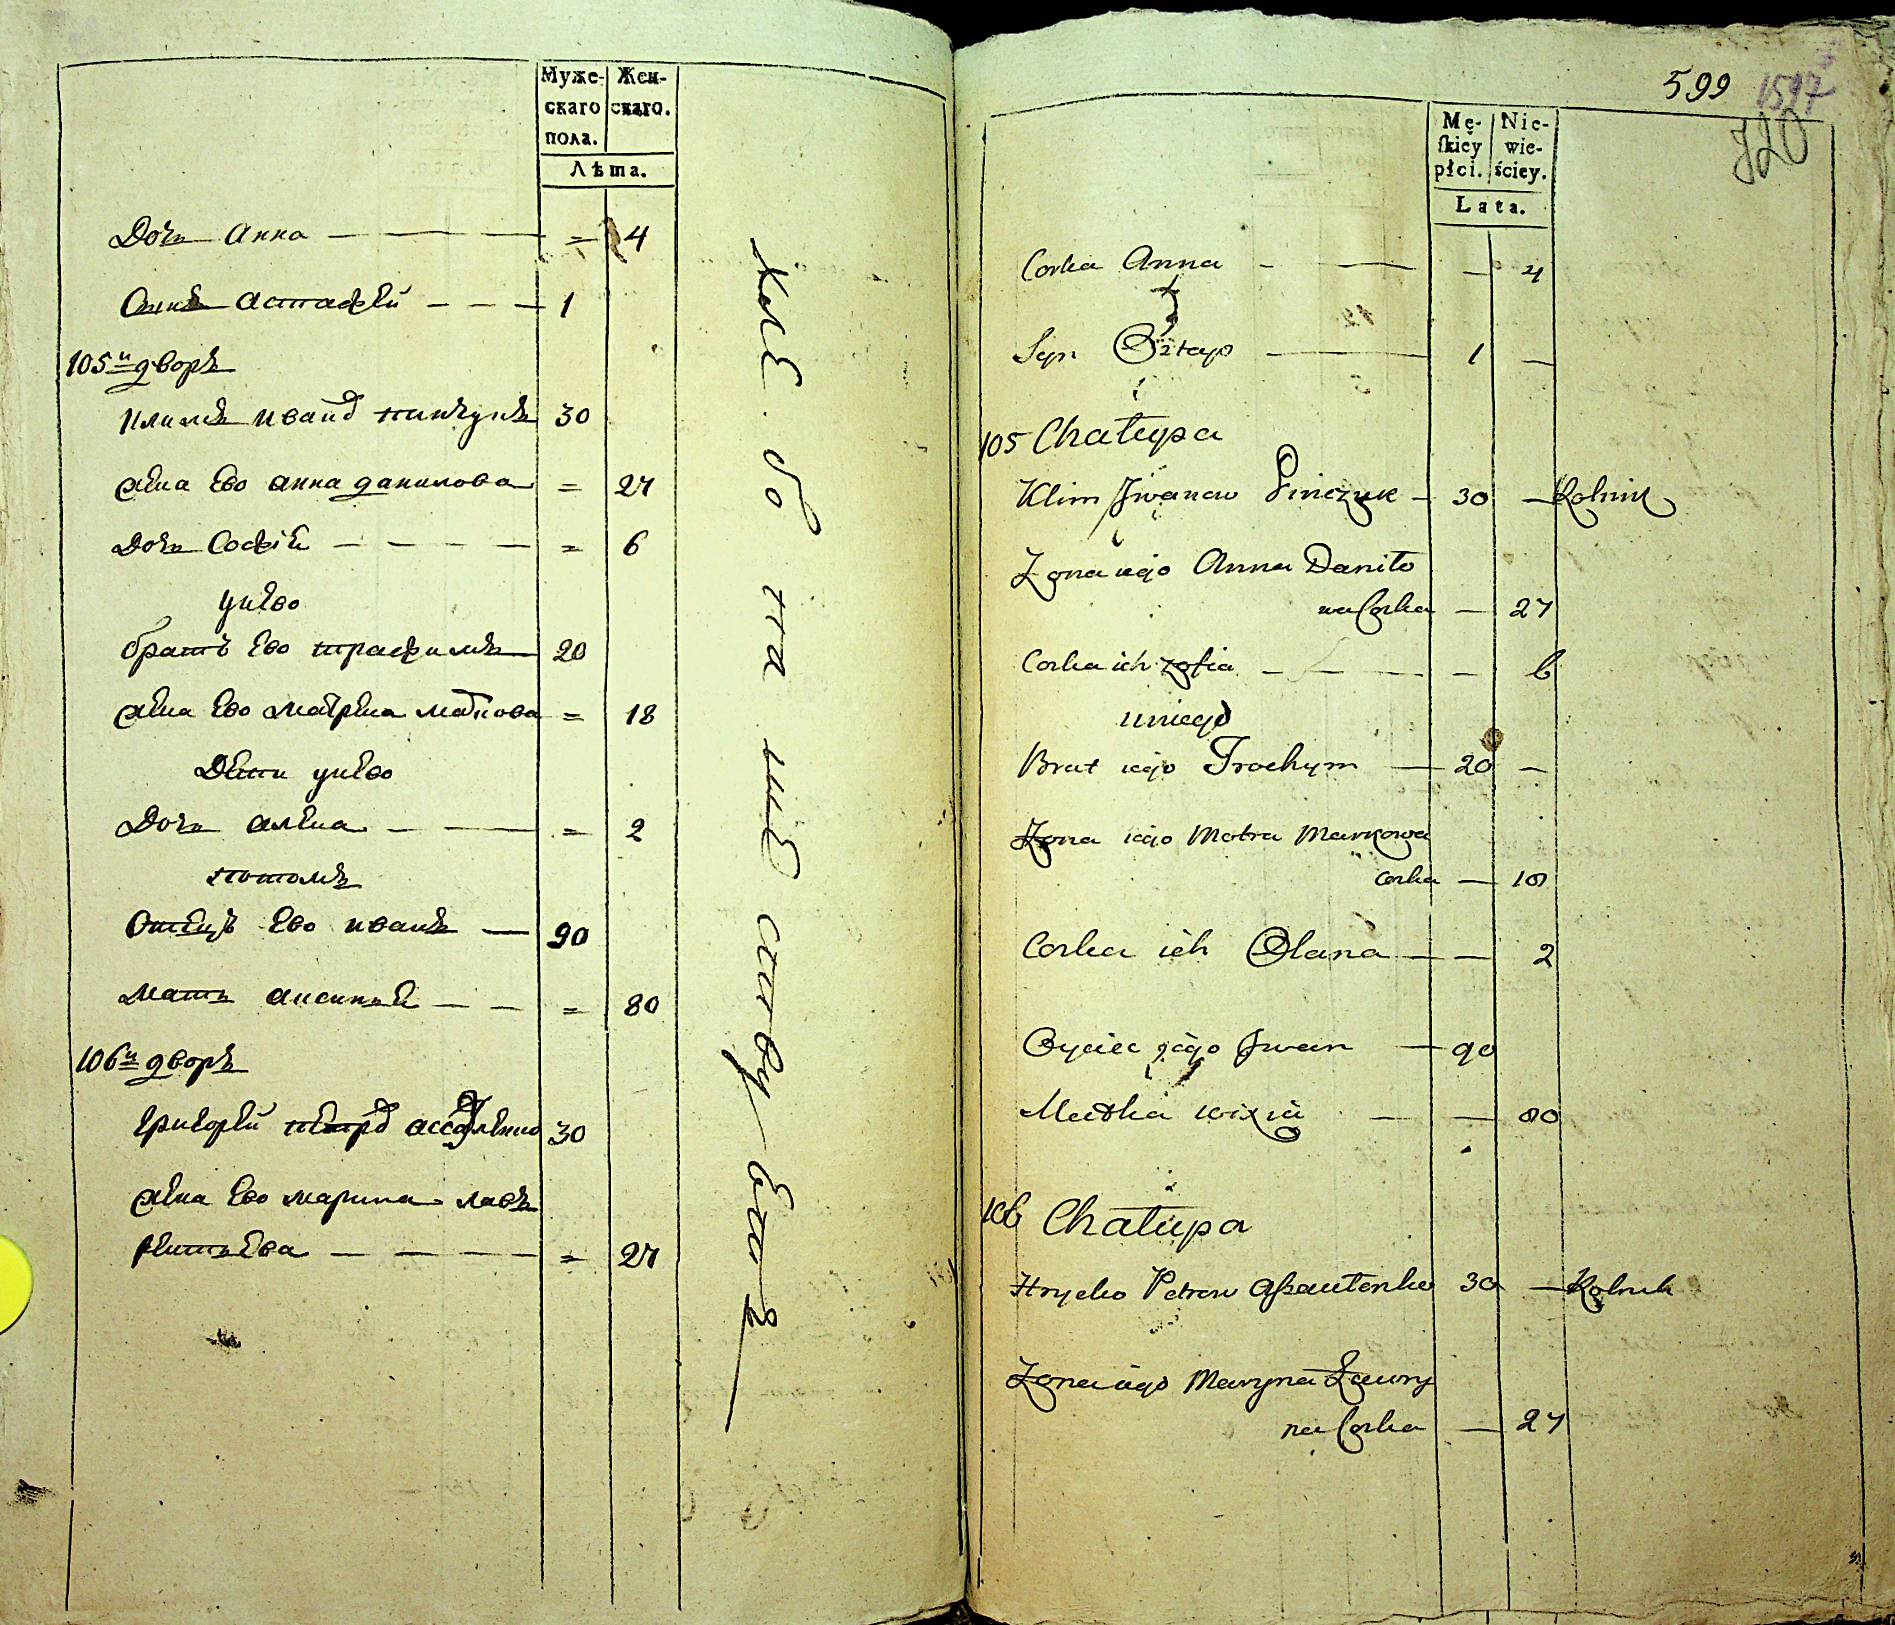 Муже-
скаго
пола.
Жен-
скаго.
Лѣта.
Дочь Анна — — — = 4
Сынъ Астафей — — — 1
105й дворъ
Климъ Иванов Пинчукъ 30
Жена Ево Анна Данилова = 27
Дочь Софія — — — — = 6
у нево
братъ Ево Трафимъ 20
Жена Ево Матрена Маркова = 18
Дети у нево
Дочь Алена — — = 2
Потомъ
Отецъ Ево Иванъ — 90
Мать Аксинья — — = 80
106й дворъ
Григорей Петров 30
Жена Ево Марина Лавъ
рентьева — — — = 27
599
1597
720
Mę-
skiey
płci.
Nie-
wie-
ściey.
Lata.
Corka Anna - — — 4
Syn Ostap — 1 —
105 Chałupa
Klim Jwanow Pinczuk — 30 — Rolnik
Zona iego Anna Daniło
wa Corka — 27
Corka ich Zofia — — — — 6
u niego
Brat iego Trochym — 20 —
Zona iego Motra Markowa
Corka — 18
Corka ich Olana — — 2
Oyciec iego Jwan — 90
Matka — — 80
106 Chałupa
Hrycko Petrow Assaulenko 30 — Rolnik
Zona iego Maryna Ławry
na Corka — 27